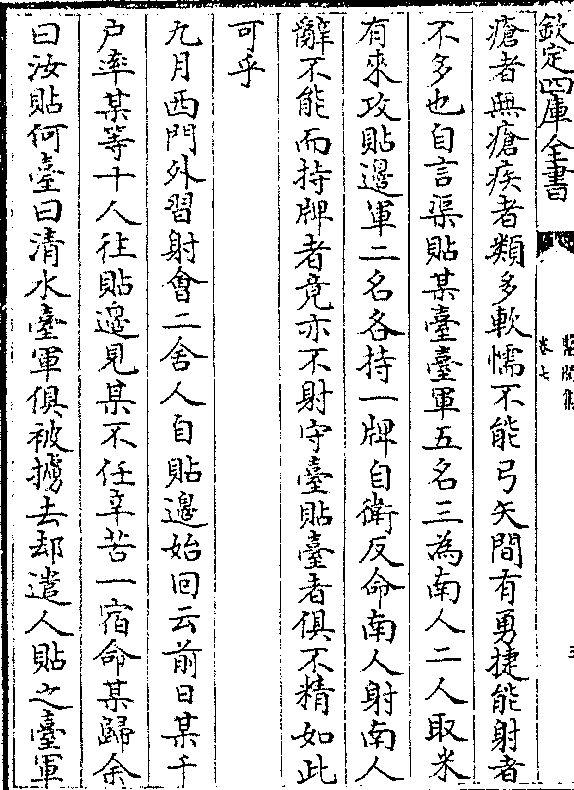 欽定四庫全書
卷七
瘡者無瘡疾者類多軟懦不能弓矢間有勇捷能射者
不多也自言渠貼某臺臺軍五名三為南人二人取米
有來攻貼邊軍二名各持一牌自衛反命南人射南人
辭不能而持牌者竟亦不射守臺貼臺者俱不精如此
可乎
九月西門外習射會二舍人自貼邊始回云前日某千
户率某等十人往貼邊見某不任辛苦一宿命某歸余
曰汝貼何臺曰清水臺軍俱被擄去却遣人貼之臺軍